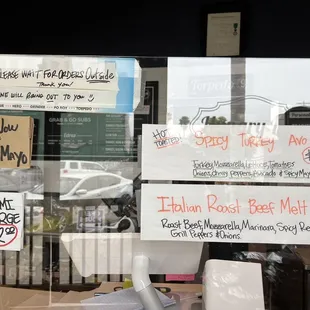 PLEASE WAIT FOR ORDERS Outside
Thank you!
WILL BRING OUT TO YOU
GRAB & GO SUBS
TORPEDO
Mayo
LARGE
HOT
TOASTED
SPICY TURKEY AVO
Turkey, Mozzarella, Lettuce, Tomatoes
Onions, Cherry peppers, Avocado & Spicy Mayo
Italian Roast Beef Melt
Roast Beef, Mozzarella, Marinara, Spicy Re
Grill Peppers & Onions.